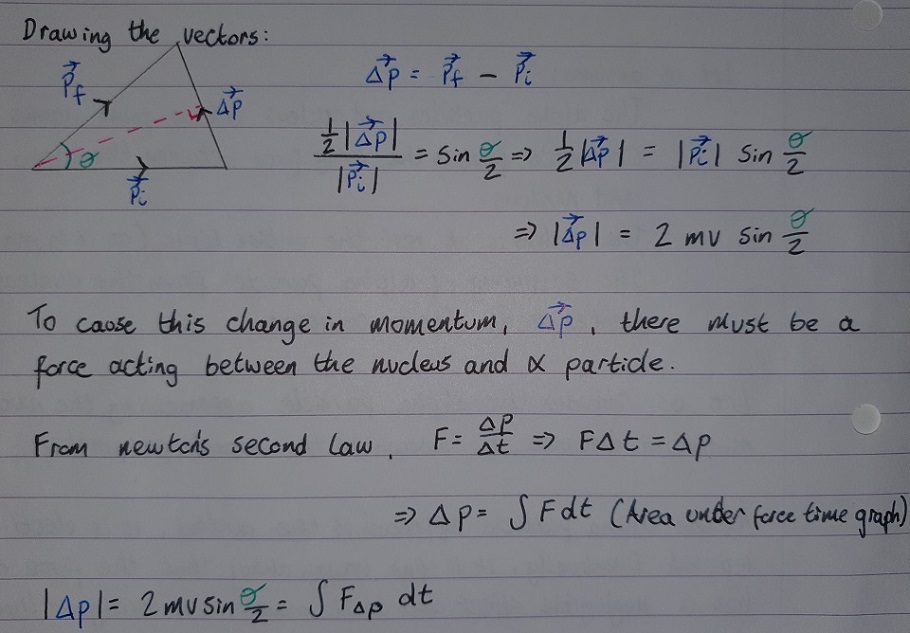 Drawing the vectors:
$\vec{P}_f$
$\vec{\Delta p}$
θ
$\vec{P}_i$
$\vec{\Delta p} = \vec{P}_f - \vec{P}_i$
$\frac{\frac{1}{2}|\vec{\Delta p}|}{|\vec{P}_i|} = \sin\frac{\theta}{2} \Rightarrow \frac{1}{2}|\vec{\Delta p}| = |\vec{P}_i| \sin\frac{\theta}{2}$
$\Rightarrow |\vec{\Delta p}| = 2mv \sin\frac{\theta}{2}$
To caose this change in momentum, $\vec{\Delta p}$, there must be a
force acting between the nucleus and α particle.
From newton's second law, $F = \frac{\Delta P}{\Delta t} \Rightarrow F\Delta t = \Delta p$
$\Rightarrow \Delta p = \int F dt$ (Area under force time graph)
$|\Delta p| = 2mv\sin\frac{\theta}{2} = \int F_{\Delta p} \, dt$